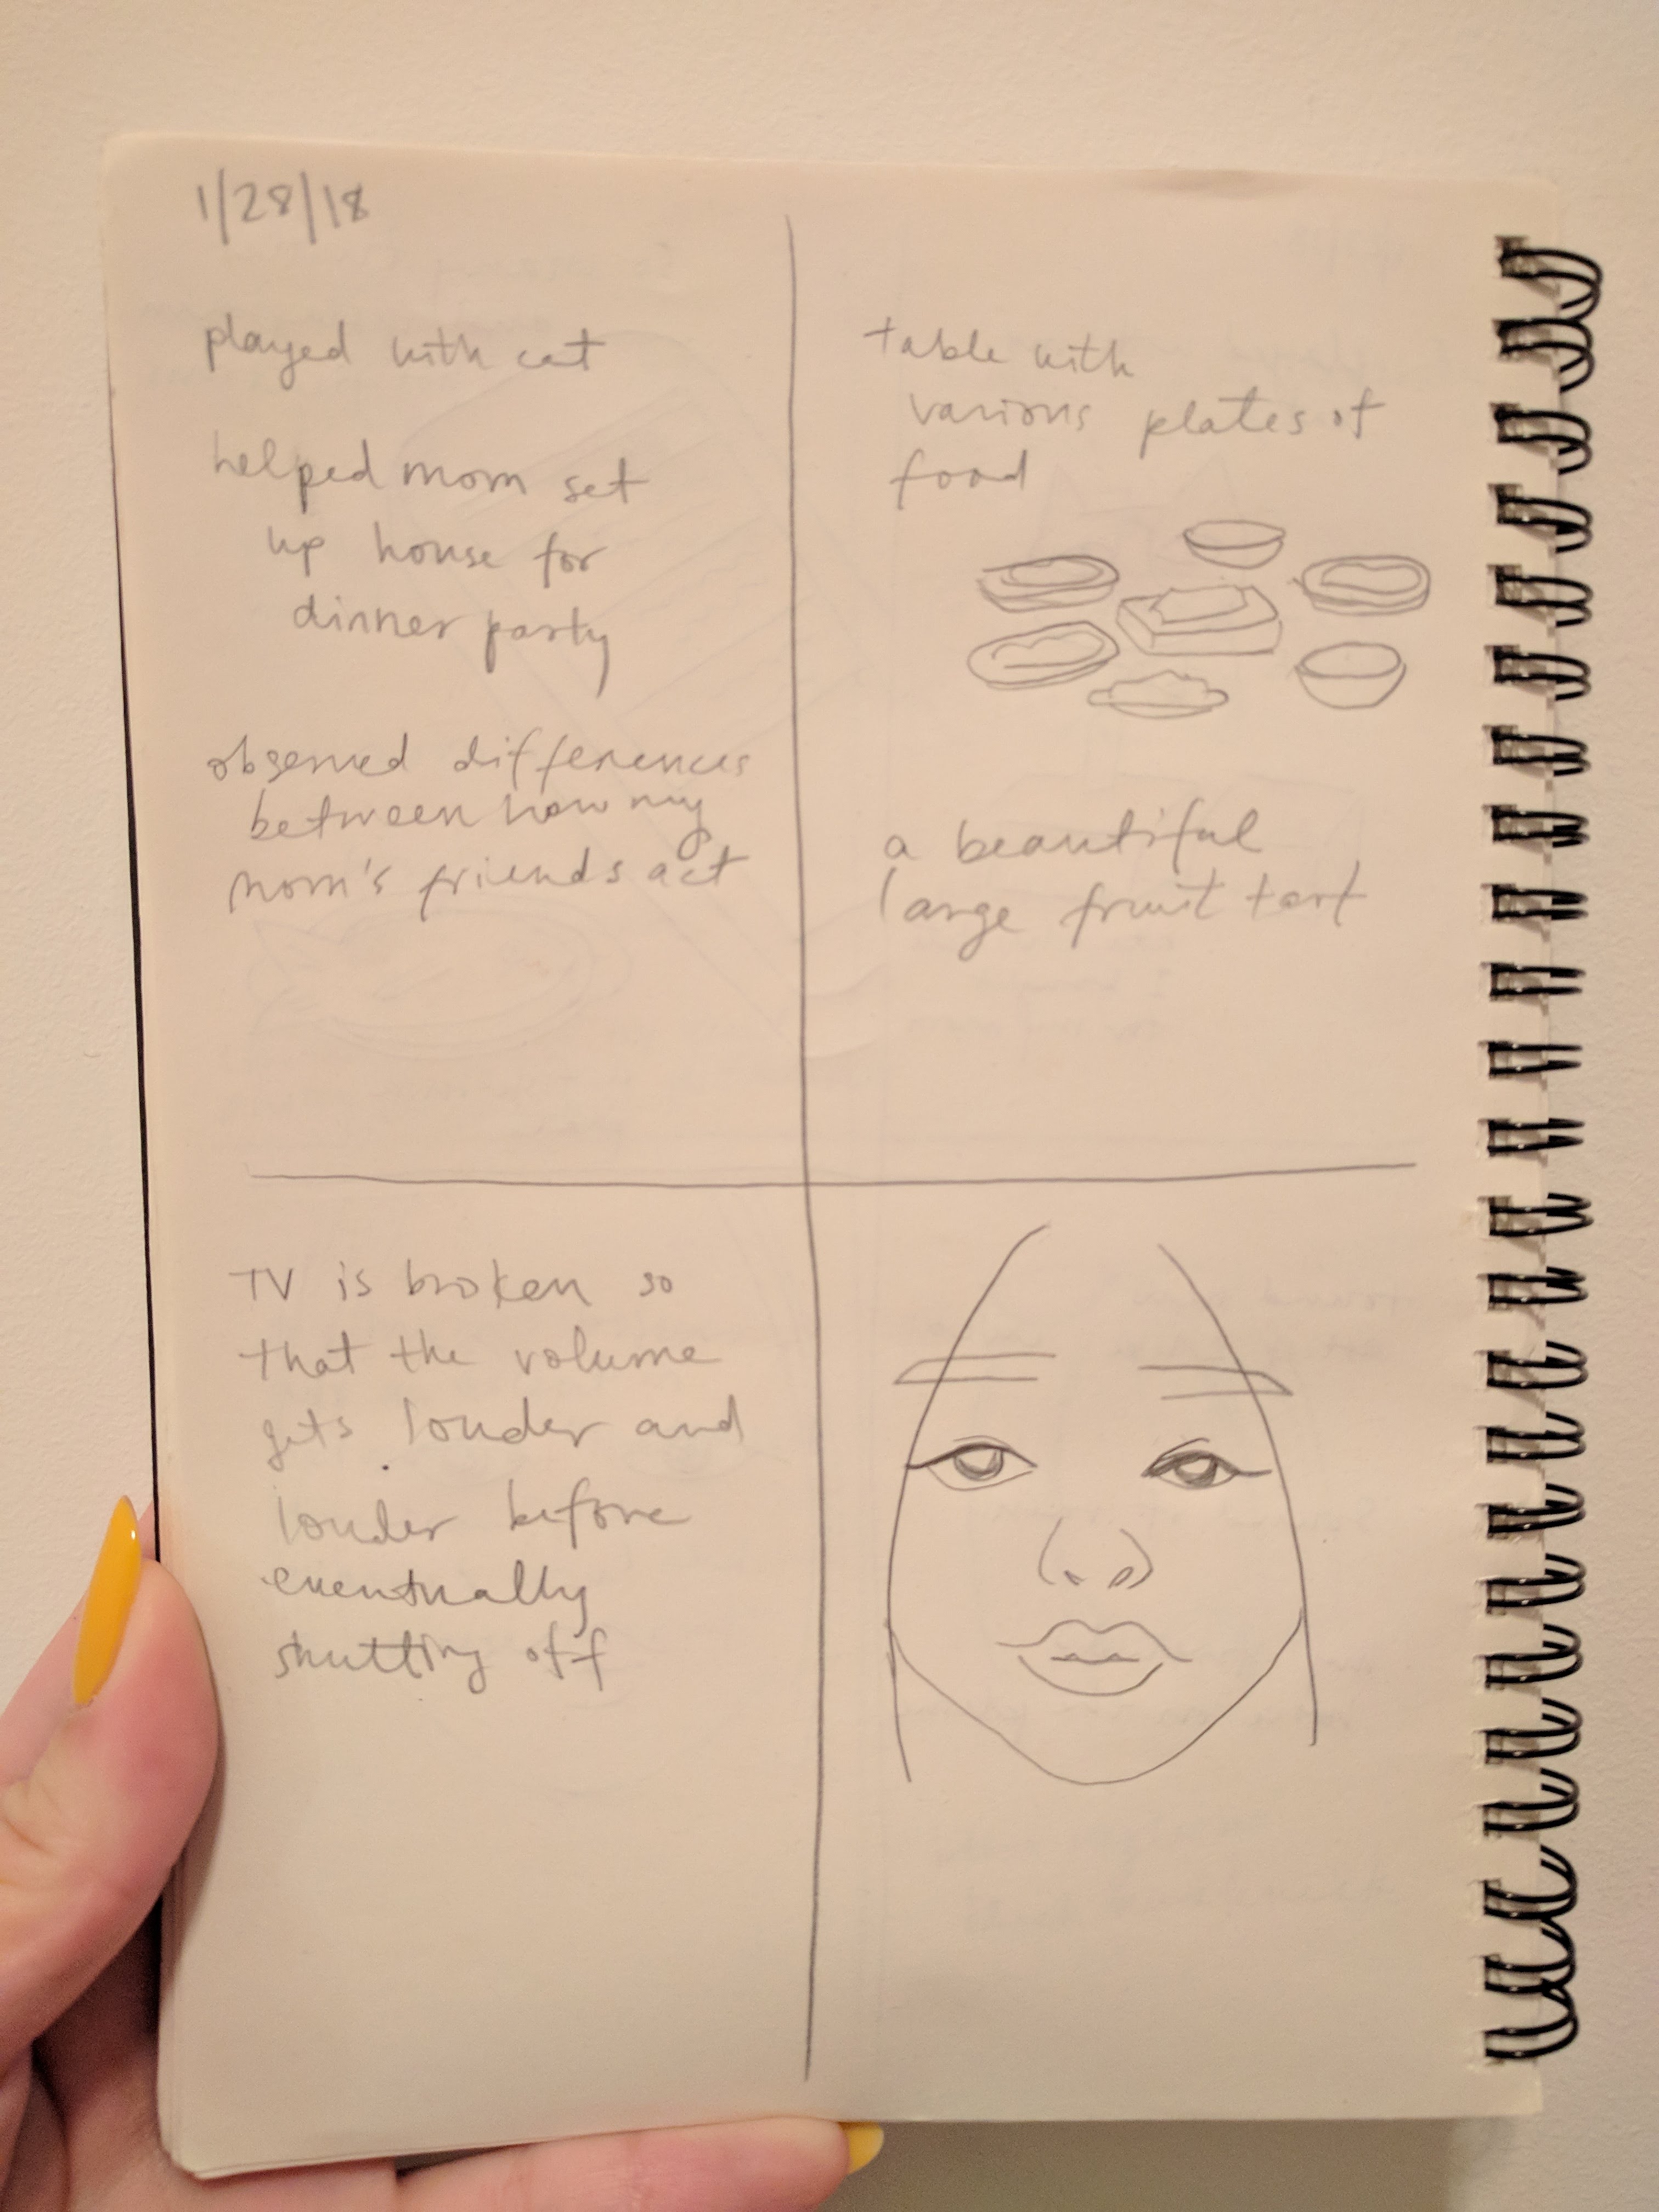 1/28/18
played with cat
helped mom set
up house for
dinner party
observed differences
between how my
mom's friends act
table with
various plates of
food
a beautiful
large fruit tart
TV is broken so
that the volume
gets louder and
louder before
eventually
shutting off